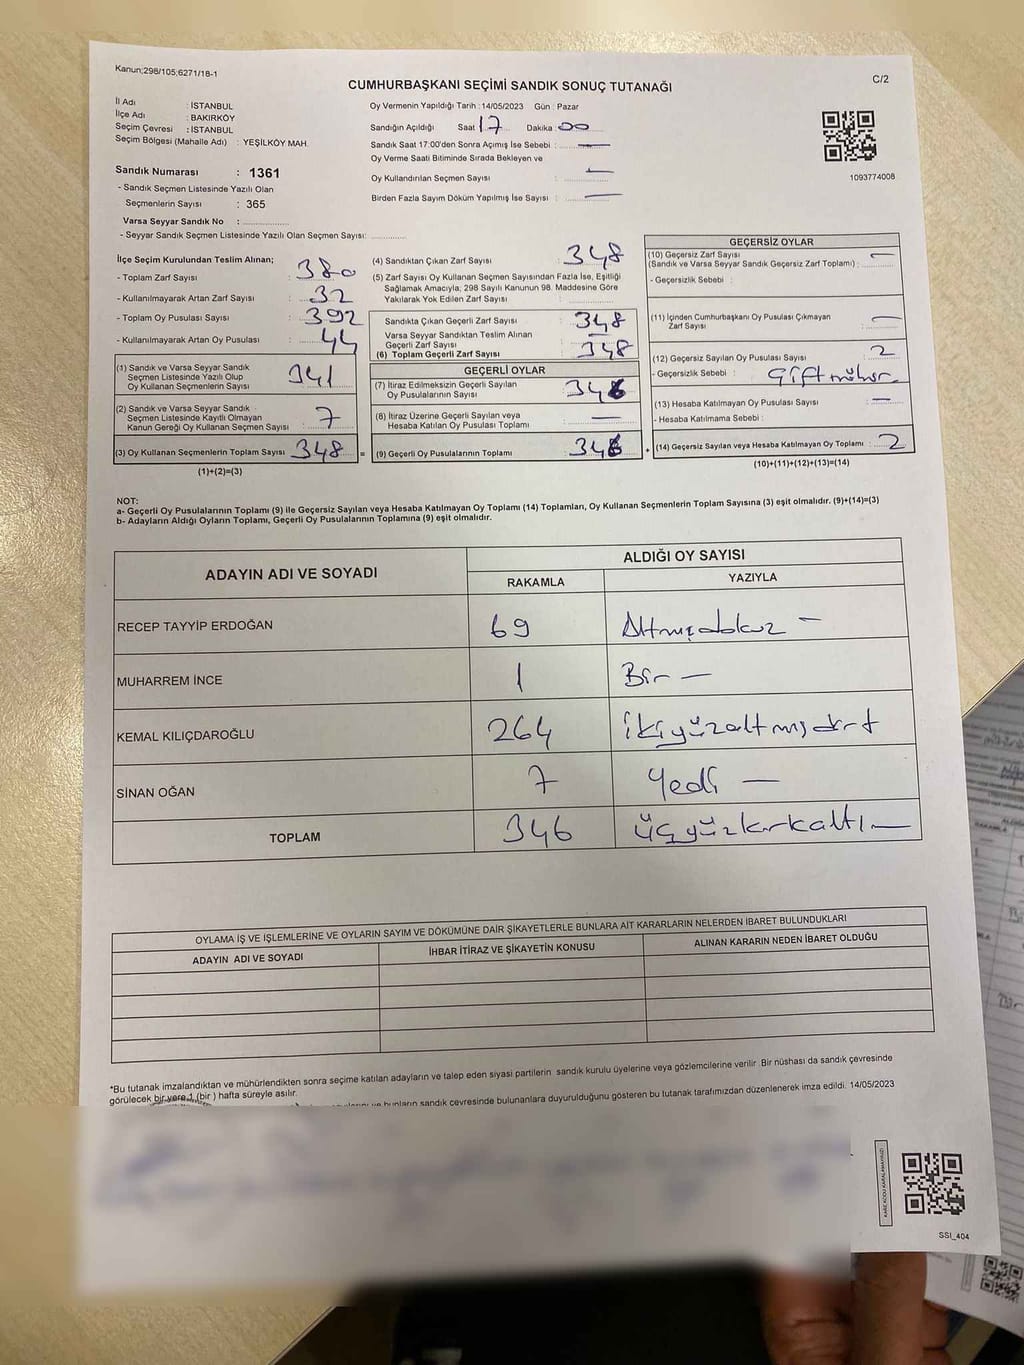 Kanun;298/105;6271/18-1
C/2
CUMHURBAŞKANI SEÇİMİ SANDIK SONUÇ TUTANAĞI
İl Adı : İSTANBUL
İlçe Adı : BAKIRKÖY
Seçim Çevresi : İSTANBUL
Seçim Bölgesi (Mahalle Adı) : YEŞİLKÖY MAH.
Sandık Numarası : 1361
- Sandık Seçmen Listesinde Yazılı Olan
Seçmenlerin Sayısı : 365
Varsa Seyyar Sandık No :
- Seyyar Sandık Seçmen Listesinde Yazılı Olan Seçmen Sayısı:
Oy Vermenin Yapıldığı Tarih : 14/05/2023 Gün : Pazar
Sandığın Açıldığı Saat 17 Dakika : 00
Sandık Saat 17:00'den Sonra Açımış İse Sebebi : —
Oy Verme Saati Bitiminde Sırada Bekleyen ve
Oy Kullandırılan Seçmen Sayısı : —
Birden Fazla Sayım Döküm Yapılmış İse Sayısı : —
1093774008
İlçe Seçim Kurulundan Teslim Alınan;
- Toplam Zarf Sayısı : 380
- Kullanılmayarak Artan Zarf Sayısı : 32
- Toplam Oy Pusulası Sayısı : 392
- Kullanılmayarak Artan Oy Pusulası : 44
(1) Sandık ve Varsa Seyyar Sandık
Seçmen Listesinde Yazılı Olup
Oy Kullanan Seçmenlerin Sayısı : 341
(2) Sandık ve Varsa Seyyar Sandık
Seçmen Listesinde Kayıtlı Olmayan
Kanun Gereği Oy Kullanan Seçmen Sayısı : 7
(3) Oy Kullanan Seçmenlerin Toplam Sayısı : 348 =
(1)+(2)=(3)
(4) Sandıktan Çıkan Zarf Sayısı : 348
(5) Zarf Sayısı Oy Kullanan Seçmen Sayısından Fazla İse, Eşitliği
Sağlamak Amacıyla; 298 Sayılı Kanunun 98. Maddesine Göre
Yakılarak Yok Edilen Zarf Sayısı :
Sandıkta Çıkan Geçerli Zarf Sayısı : 348
Varsa Seyyar Sandıktan Teslim Alınan
Geçerli Zarf Sayısı : —
(6) Toplam Geçerli Zarf Sayısı : 348
GEÇERLİ OYLAR
(7) İtiraz Edilmeksizin Geçerli Sayılan
Oy Pusulalarının Sayısı : 346
(8) İtiraz Üzerine Geçerli Sayılan veya
Hesaba Katılan Oy Pusulası Toplamı : —
(9) Geçerli Oy Pusulalarının Toplamı : 346 +
GEÇERSİZ OYLAR
(10) Geçersiz Zarf Sayısı : —
(Sandık ve Varsa Seyyar Sandık Geçersiz Zarf Toplamı) :
- Geçersizlik Sebebi :
(11) İçinden Cumhurbaşkanı Oy Pusulası Çıkmayan
Zarf Sayısı : —
(12) Geçersiz Sayılan Oy Pusulası Sayısı : 2
- Geçersizlik Sebebi : Çift mühür
(13) Hesaba Katılmayan Oy Pusulası Sayısı : —
- Hesaba Katılmama Sebebi :
(14) Geçersiz Sayılan veya Hesaba Katılmayan Oy Toplamı : 2
(10)+(11)+(12)+(13)=(14)
NOT:
a- Geçerli Oy Pusulalarının Toplamı (9) ile Geçersiz Sayılan veya Hesaba Katılmayan Oy Toplamı (14) Toplamları, Oy Kullanan Seçmenlerin Toplam Sayısına (3) eşit olmalıdır. (9)+(14)=(3)
b- Adayların Aldığı Oyların Toplamı, Geçerli Oy Pusulalarının Toplamına (9) eşit olmalıdır.
ADAYIN ADI VE SOYADI
ALDIĞI OY SAYISI
RAKAMLA YAZIYLA
RECEP TAYYİP ERDOĞAN 69 Altmışdokuz —
MUHARREM İNCE 1 Bir —
KEMAL KILIÇDAROĞLU 264 ikiyüzaltmışdört
SİNAN OĞAN 7 Yedi —
TOPLAM 346 üçyüzkırkaltı —
OYLAMA İŞ VE İŞLEMLERİNE VE OYLARIN SAYIM VE DÖKÜMÜNE DAİR ŞİKAYETLERLE BUNLARA AİT KARARLARIN NELERDEN İBARET BULUNDUKLARI
ADAYIN ADI VE SOYADI İHBAR İTİRAZ VE ŞİKAYETİN KONUSU ALINAN KARARIN NEDEN İBARET OLDUĞU
*Bu tutanak imzalandıktan ve mühürlendikten sonra seçime katılan adayların ve talep eden siyasi partilerin sandık kurulu üyelerine veya gözlemcilerine verilir. Bir nüshası da sandık çevresinde
görülecek bir yere 1 (bir) hafta süreyle asılır.
bunların sandık çevresinde bulunanlara duyurulduğunu gösteren bu tutanak tarafımızdan düzenlenerek imza edildi. 14/05/2023
KARE KODU KARALAMAYINIZ!
SSI_404